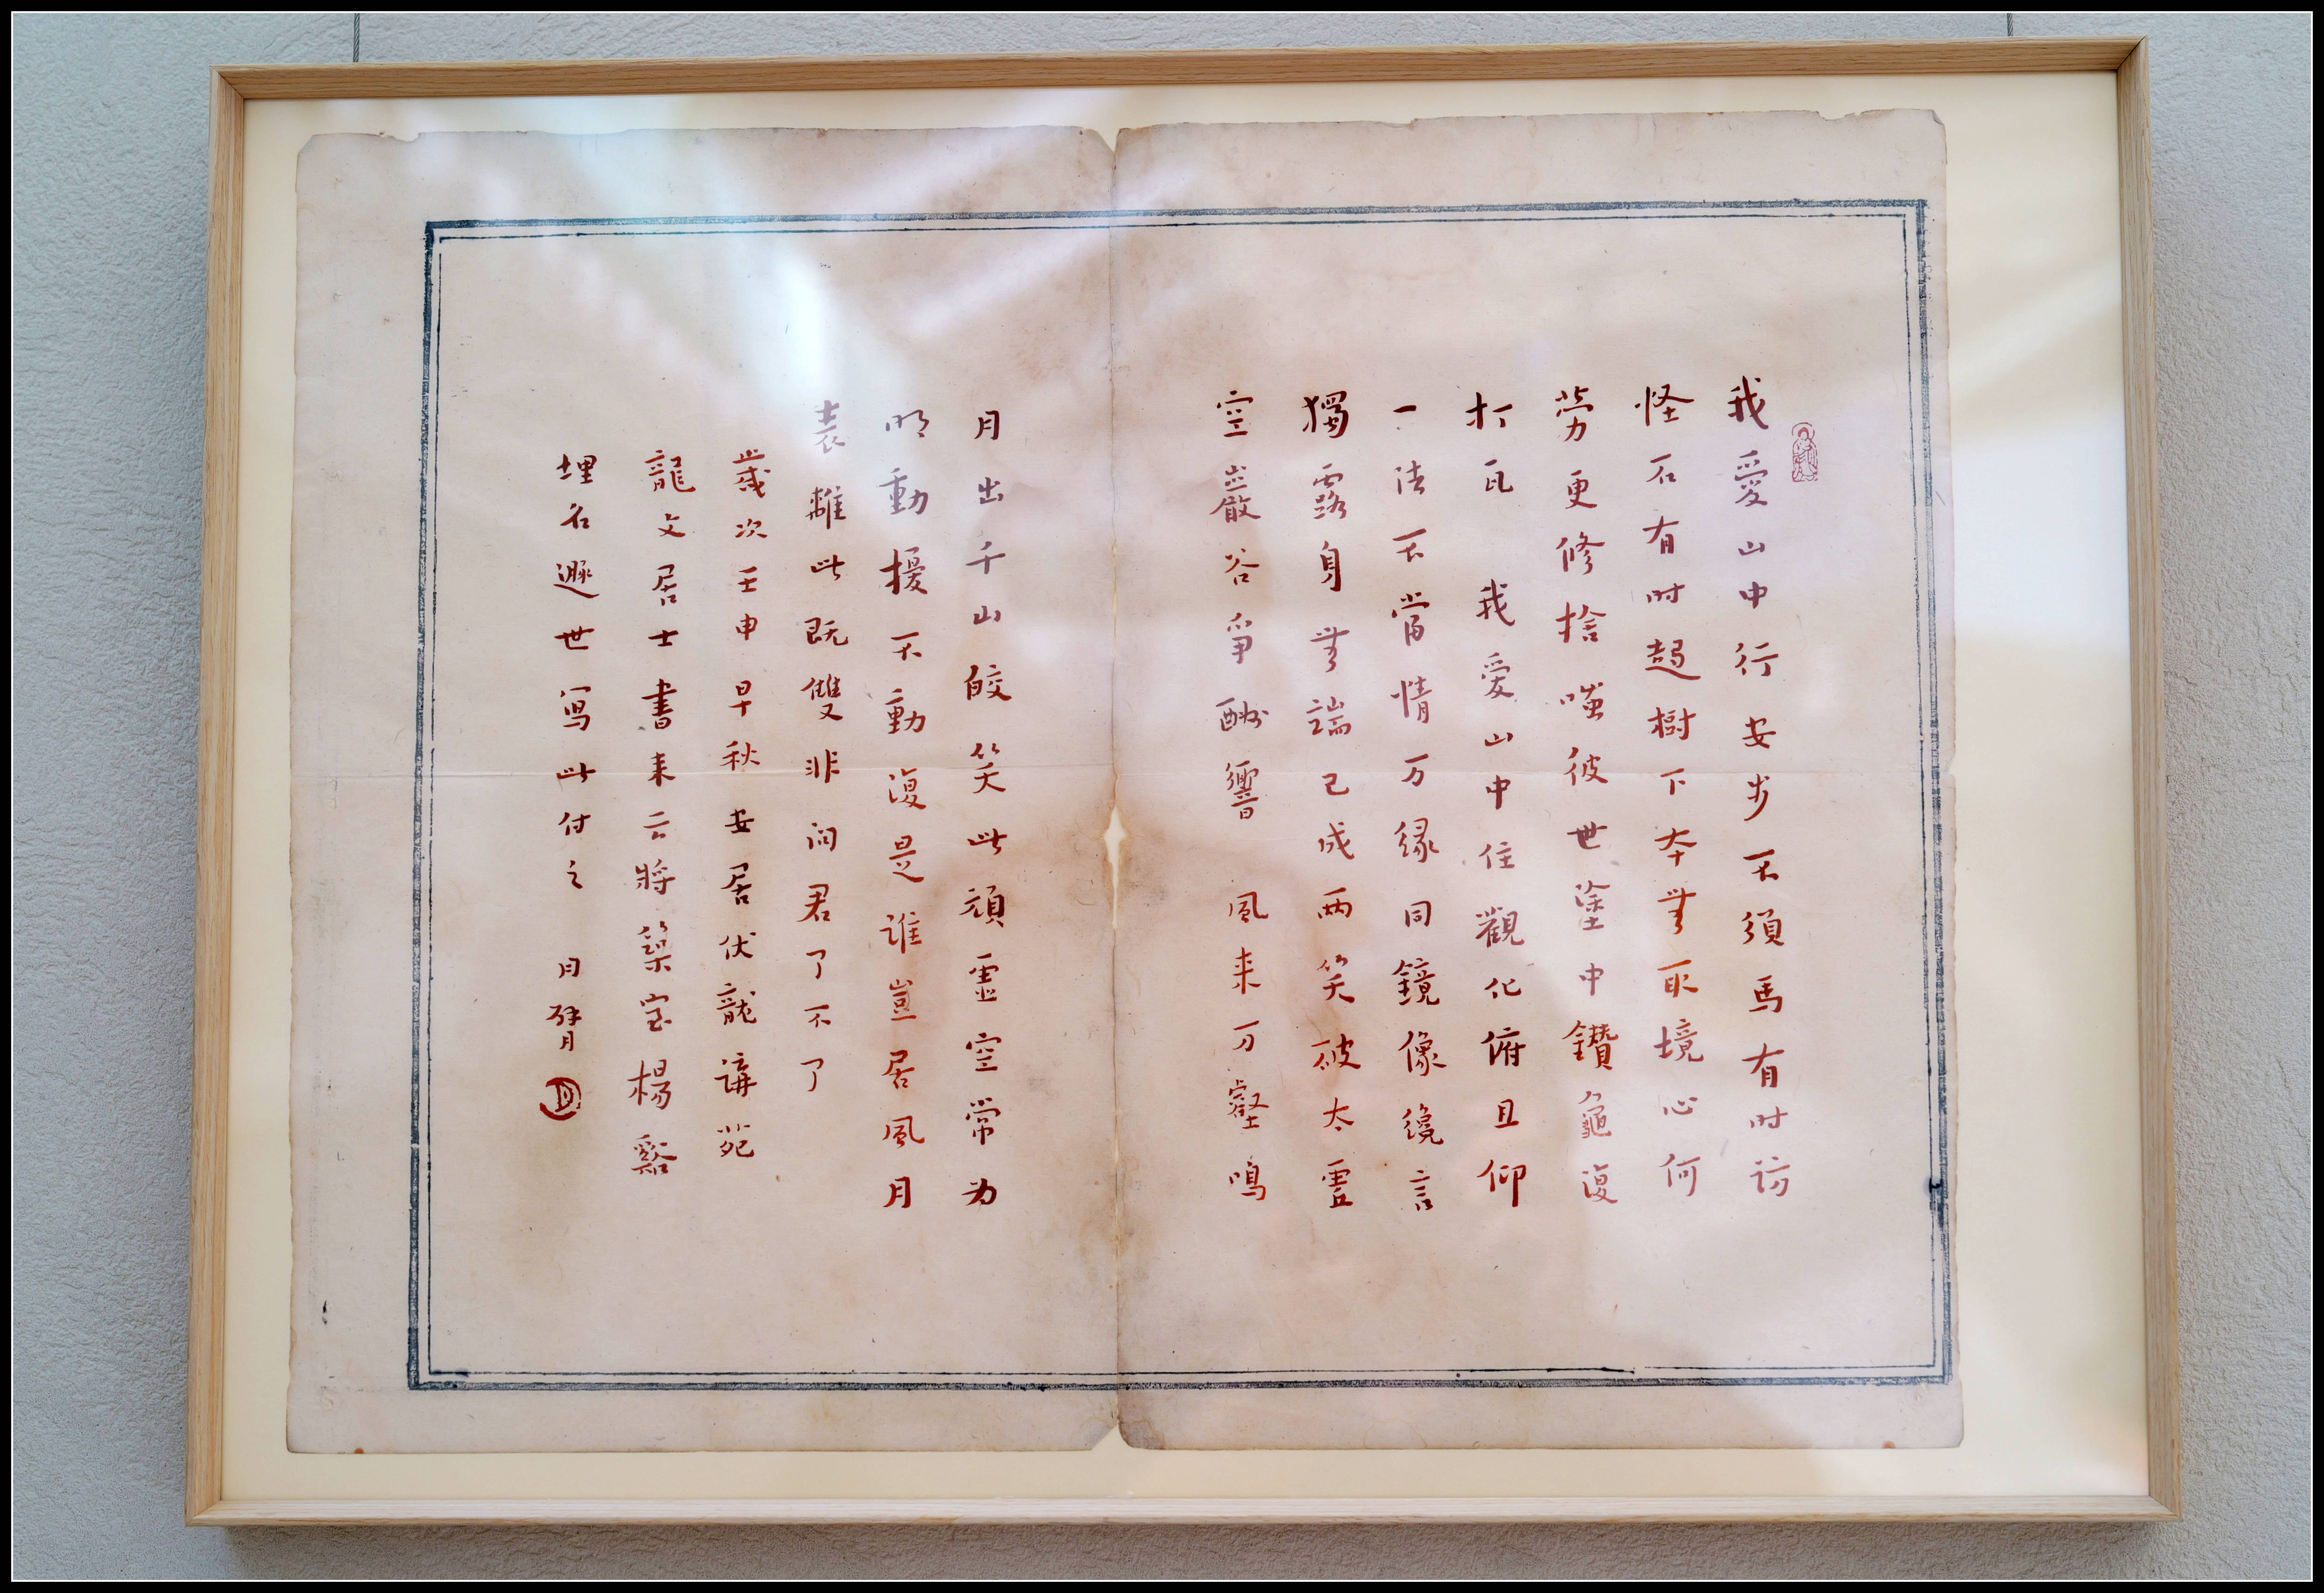 我愛山中行安步不須馬有时訪
怪石有时趨樹下本無取境心何
勞更修捨嗤彼世塗中鑽龜復
打瓦　我愛山中住觀化俯且仰
一法不當情万緣同鏡像纔言
獨露身無端已成兩笑破太虛
空巖谷爭酬響風来万壑鳴
月出千山皎笑此頑虛空常为
明動擾不動復是誰豈居風月
表離此既雙非问君了不了
歲次壬申早秋安居伏龍講苑
龍文居士書来云將築室楊谿
埋名遯世寫此付之　月臂